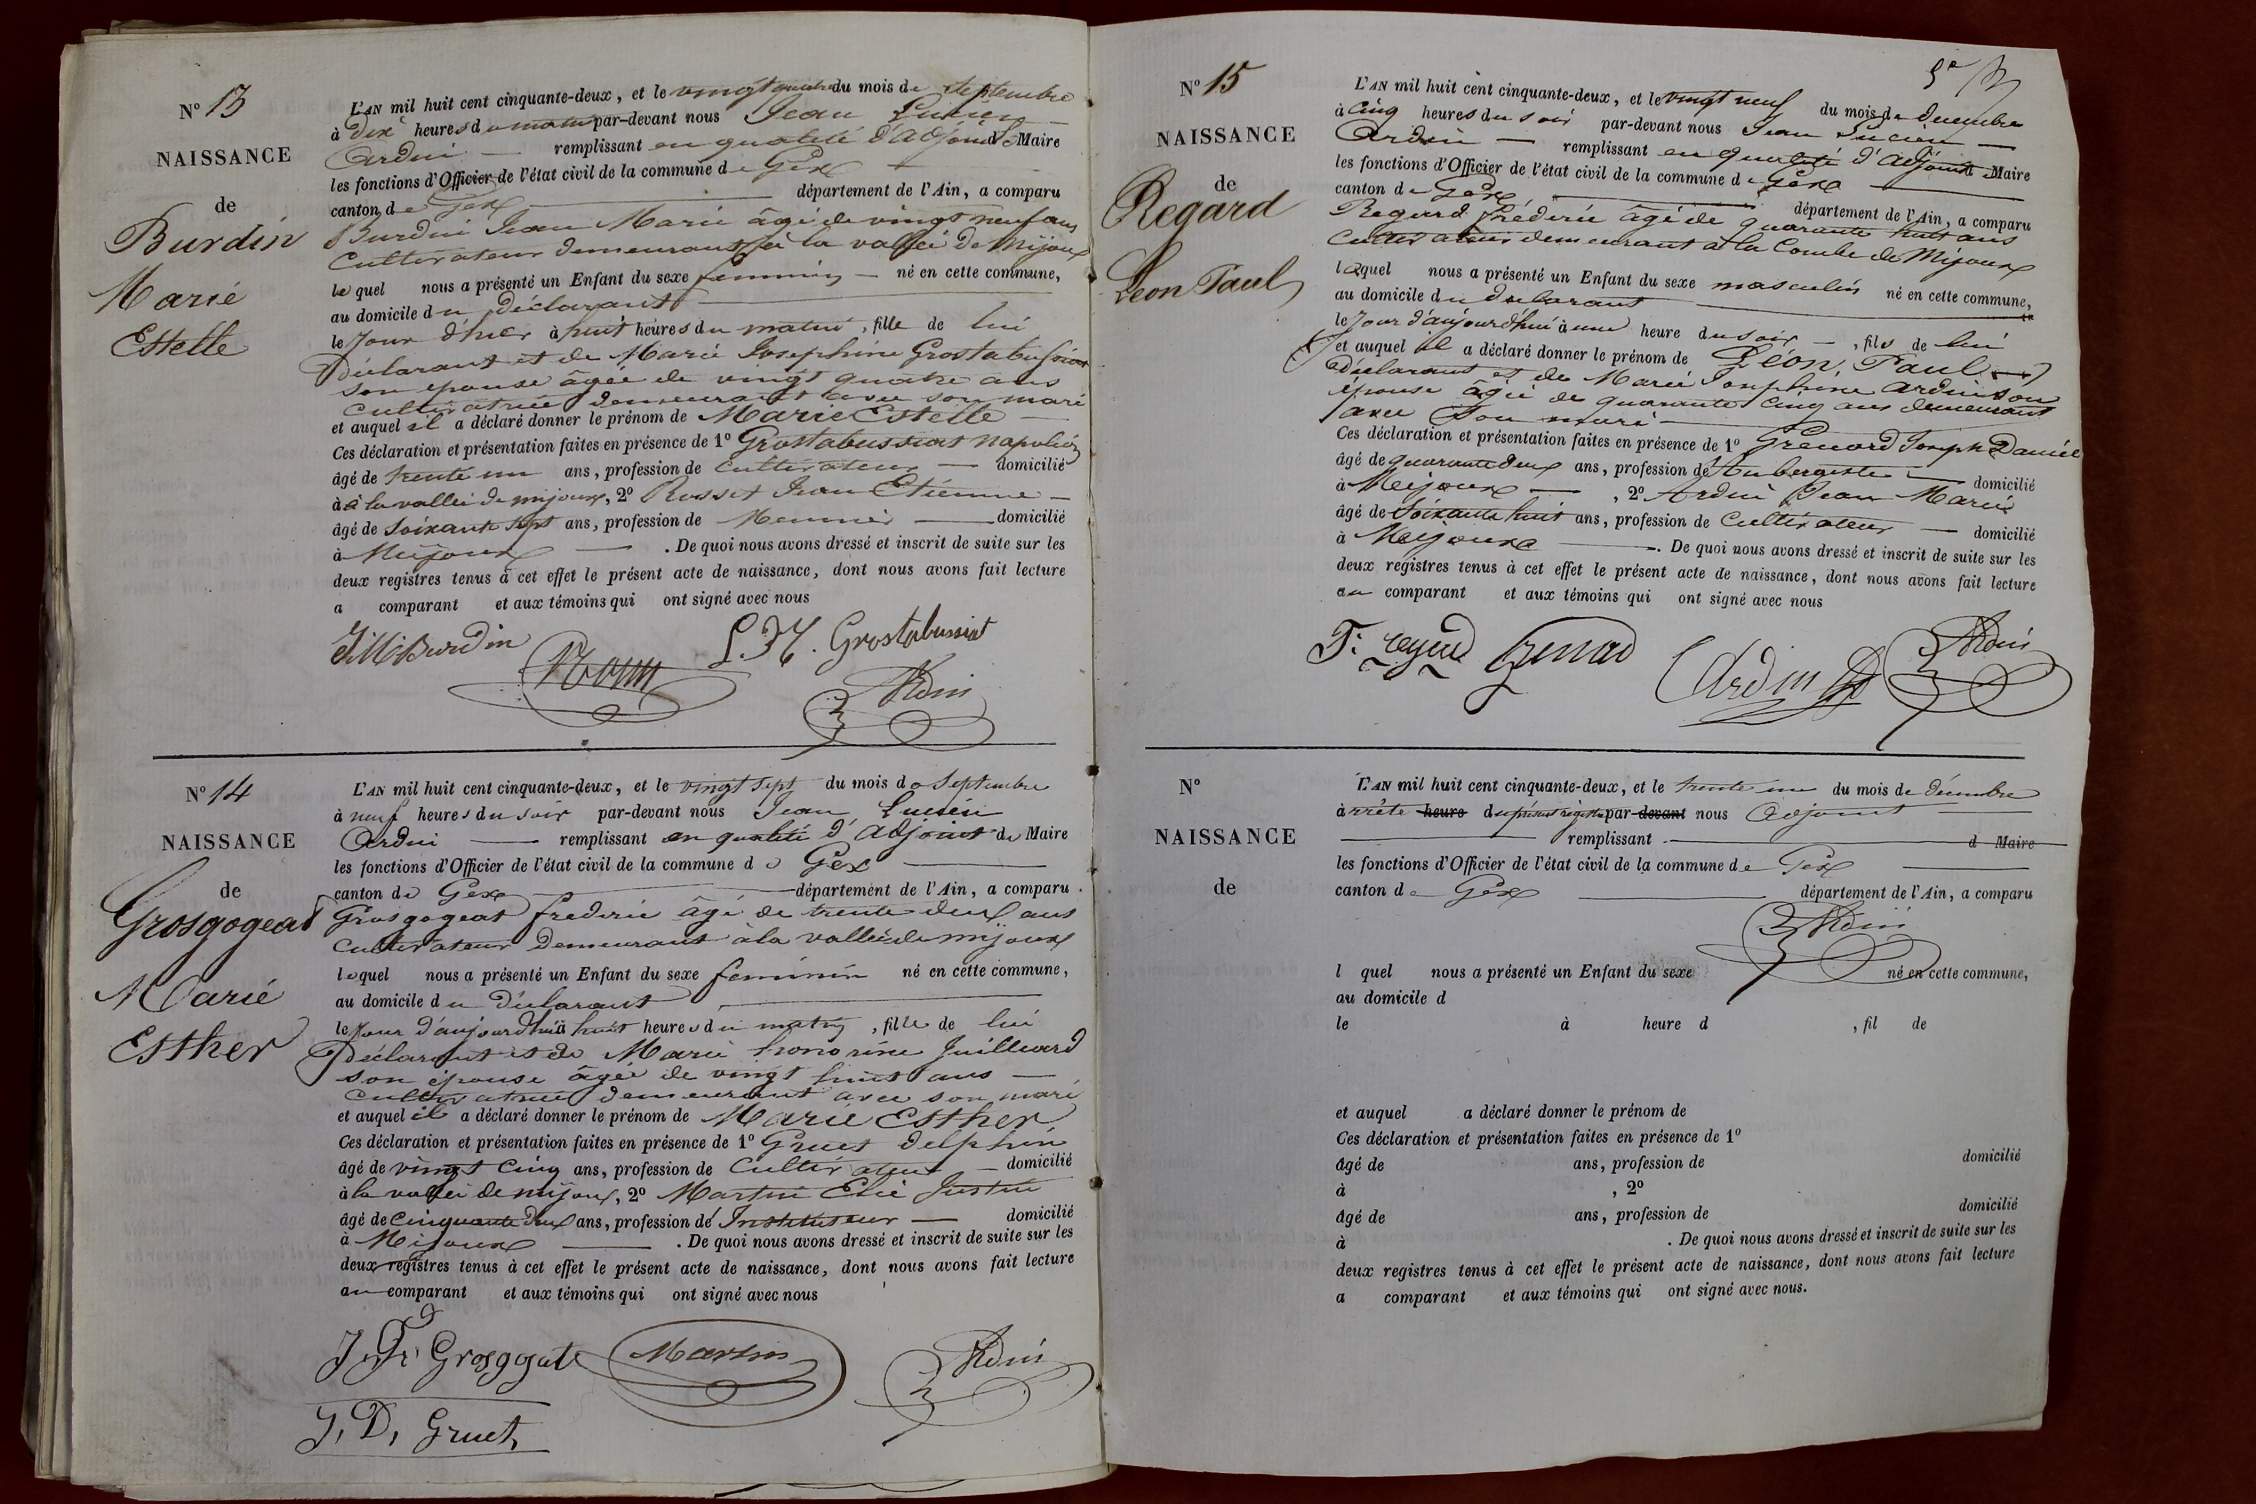 N° 13
NAISSANCE
de
Burdin
Marie
Estelle
L'AN mil huit cent cinquante-deux, et le vingt quatre du mois de Septembre
à dix heures du matin par-devant nous Jean Lucien
Ardin remplissant en qualité d'Adjoint de Maire
les fonctions d'Officier de l'état civil de la commune de Gex
canton de Gex département de l'Ain, a comparu
Burdin Jean Marie âgé de vingt neuf ans
Cultivateur demeurant à la vallée de Mijoux
lequel nous a présenté un Enfant du sexe féminin né en cette commune,
au domicile du Déclarant
le Jour d'hier à huit heures du matin, fille de lui
Déclarant et de Marie Josephine Grostabussiat
son épouse âgée de vingt quatre ans
cultivatrice demeurant avec son mari
et auquel il a déclaré donner le prénom de Marie Estelle
Ces déclaration et présentation faites en présence de 1° Grostabussiat Napoléon
âgé de trente un ans, profession de cultivateur domicilié
à à la vallée de mijoux, 2° Rosset Jean Etienne
âgé de soixante sept ans, profession de Meunier domicilié
à Mijoux. De quoi nous avons dressé et inscrit de suite sur les
deux registres tenus à cet effet le présent acte de naissance, dont nous avons fait lecture
a comparant et aux témoins qui ont signé avec nous
JM Burdin
Grostabussiat
Ardin
N° 14
NAISSANCE
de
Grosgogeat
Marie
Esther
L'AN mil huit cent cinquante-deux, et le vingt sept du mois de Septembre
à neuf heures du soir par-devant nous Jean Lucien
Ardin remplissant en qualité d'Adjoint de Maire
les fonctions d'Officier de l'état civil de la commune de Gex
canton de Gex département de l'Ain, a comparu
Grosgogeat frederic âgé de trente deux ans
Cultivateur demeurant à la vallée de mijoux
lequel nous a présenté un Enfant du sexe féminin né en cette commune,
au domicile du Déclarant
le Jour d'aujourdhui à huit heures du matin, fille de lui
Déclarant et de Marie honorine Juilliard
son épouse âgée de vingt huit ans
cultivatrice demeurant avec son mari
et auquel il a déclaré donner le prénom de Marie Esther
Ces déclaration et présentation faites en présence de 1° Gruet delphin
âgé de vingt cinq ans, profession de Cultivateur domicilié
à la vallée de mijoux, 2° Martin Elie Justin
âgé de cinquante deux ans, profession de Instituteur domicilié
à Mijoux. De quoi nous avons dressé et inscrit de suite sur les
deux registres tenus à cet effet le présent acte de naissance, dont nous avons fait lecture
au comparant et aux témoins qui ont signé avec nous
Martin
Ardin
J, D, Gruet,
N° 15
NAISSANCE
de
Regard
Léon Paul
L'AN mil huit cent cinquante-deux, et le vingt neuf du mois de décembre
à cinq heures du soir par-devant nous Jean Lucien
Ardin remplissant en qualité d'Adjoint de Maire
les fonctions d'Officier de l'état civil de la commune de Gex
canton de Gex département de l'Ain, a comparu
Regard frédéric âgé de quarante huit ans
Cultivateur demeurant à la Combe de Mijoux
lequel nous a présenté un Enfant du sexe masculin né en cette commune,
au domicile du déclarant
le Jour d'aujourd'hui à une heure du soir, fils de lui
et auquel il a déclaré donner le prénom de Léon Paul
Déclarant et de Marie Josephine Ardin son
épouse âgée de quarante cinq ans demeurant
avec son mari
Ces déclaration et présentation faites en présence de 1° Grenard Joseph Daniel
âgé de quarante deux ans, profession de Aubergiste domicilié
à Mijoux, 2° Ardin Jean Marie
âgé de soixante huit ans, profession de Cultivateur domicilié
à Mijoux. De quoi nous avons dressé et inscrit de suite sur les
deux registres tenus à cet effet le présent acte de naissance, dont nous avons fait lecture
au comparant et aux témoins qui ont signé avec nous
Ardin
Ardin
N°
NAISSANCE
de
L'AN mil huit cent cinquante-deux, et le trente un du mois de décembre
arrêté heure du présent registre par devant nous Adjoint
remplissant d Maire
les fonctions d'Officier de l'état civil de la commune de Gex
canton de Gex département de l'Ain, a comparu
Ardin
l quel nous a présenté un Enfant du sexe né en cette commune,
au domicile d
le à heure d , fil de
et auquel a déclaré donner le prénom de
Ces déclaration et présentation faites en présence de 1°
âgé de ans, profession de domicilié
à , 2°
âgé de ans, profession de domicilié
à . De quoi nous avons dressé et inscrit de suite sur les
deux registres tenus à cet effet le présent acte de naissance, dont nous avons fait lecture
a comparant et aux témoins qui ont signé avec nous.